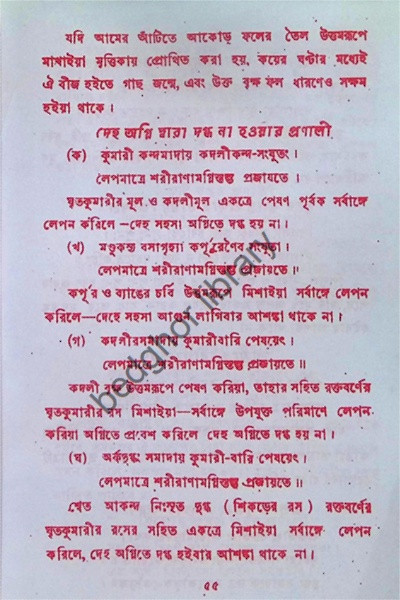 যদি আমের আঁটিতে আকোড় ফলের তৈল উত্তমরূপে
মাখাইয়া মৃত্তিকায় প্রোথিত করা হয়, কয়ের ঘণ্টার মধ্যেই
ঐ বীজ হইতে গাছ জন্মে, এবং উক্ত বৃক্ষ ফল ধারণেও সক্ষম
হইয়া থাকে।
দেহ অগ্নি দ্বারা দগ্ধ না হওয়ার প্রণালী
(ক) কুমারী কন্দমাদায় কদলীকন্দ-সংযুতং।
লেপমাত্রে শরীরাণামগ্নিস্তম্ভ প্রজায়তে।
ঘৃতকুমারীর মূল ও কদলীমূল একত্রে পেষণ পূর্বক সর্বাঙ্গে
লেপন করিলে—দেহ সহসা অগ্নিতে দগ্ধ হয় না।
(খ) মণ্ডুকস্য বসাগৃহ্যা কর্পূরেণৈব সংযুতা।
লেপমাত্রে শরীরাণামগ্নিস্তম্ভ প্রজায়তে॥
কর্পূর ও ব্যাঙের চর্বি উত্তমরূপে মিশাইয়া সর্বাঙ্গে লেপন
করিলে—দেহে সহসা আগুন লাগিবার আশঙ্কা থাকে না।
(গ) কদলীরসমাদায় কুমারীবারি পেষয়েৎ।
লেপমাত্রে শরীরাণামগ্নিস্তম্ভ প্রজায়তে॥
কদলী বৃক্ষ উত্তমরূপে পেষণ করিয়া, তাহার সহিত রক্তবর্ণের
ঘৃতকুমারীর রস মিশাইয়া—সর্বাঙ্গে উপযুক্ত পরিমাণে লেপন
করিয়া অগ্নিতে প্রবেশ করিলে দেহ অগ্নিতে দগ্ধ হয় না।
(ঘ) অর্কদুগ্ধং সমাদায় কুমারী-বারি পেষয়েৎ।
লেপমাত্রে শরীরাণামগ্নিস্তম্ভ প্রজায়তে॥
শ্বেত আকন্দ নিঃসৃত দুগ্ধ (শিকড়ের রস) রক্তবর্ণের
ঘৃতকুমারীর রসের সহিত একত্রে মিশাইয়া সর্বাঙ্গে লেপন
করিলে, দেহ অগ্নিতে দগ্ধ হইবার আশঙ্কা থাকে না।
৫৫
bedghor library